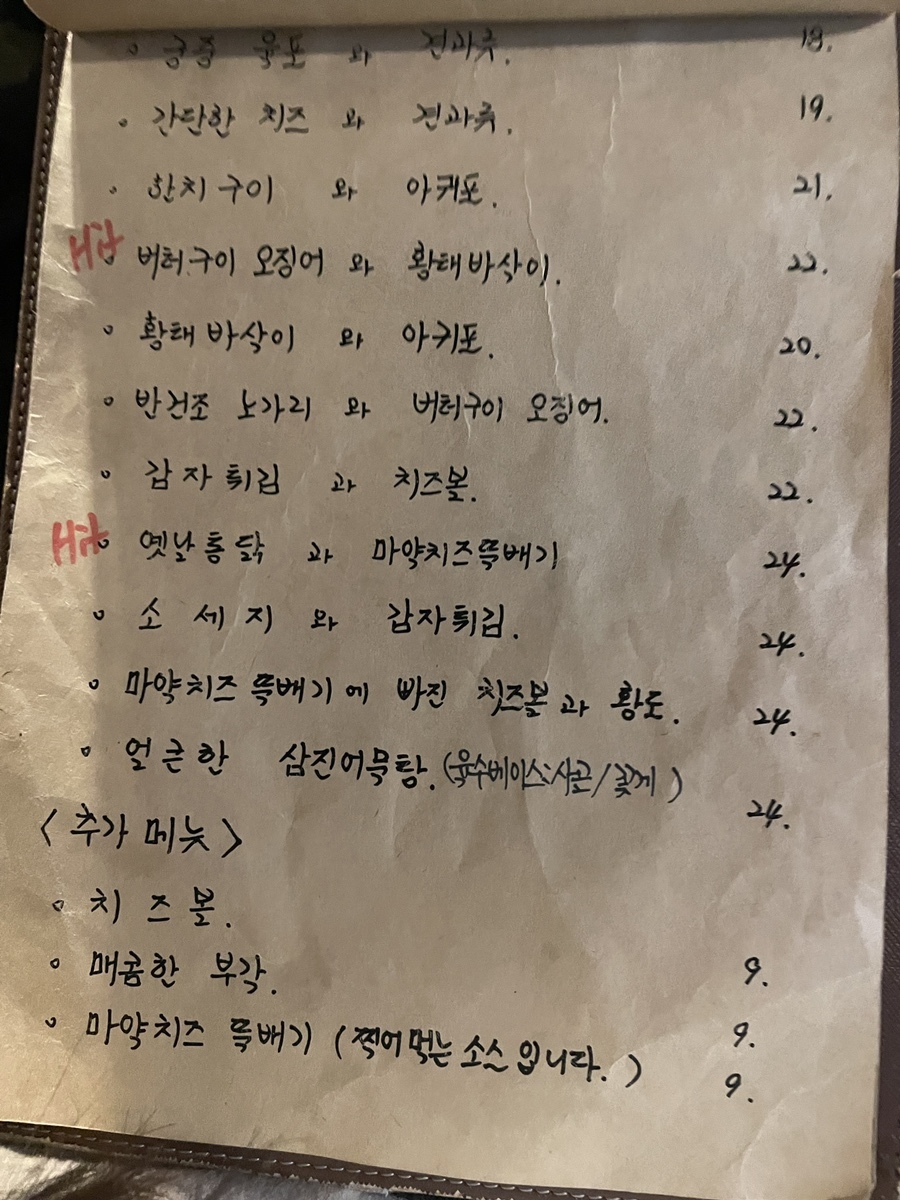 궁중 육포 와 견과류. 18.
간단한 치즈 와 견과류. 19.
한치구이 와 아귀포. 21.
Hit 버터구이 오징어 와 황태바삭이. 22.
황태바삭이 와 아귀포. 20.
반건조 노가리 와 버터구이 오징어. 22.
감자튀김 과 치즈볼. 22.
Hit 옛날통닭 과 마약치즈뚝배기 24.
소세지 와 감자튀김. 24.
마약치즈 뚝배기에 빠진 치즈볼과 황도. 24.
얼근한 삼진어묵탕. (육수베이스:사골/꽃게) 24.
<추가 메뉴>
치즈볼. 9.
매콤한 부각. 9.
마약치즈 뚝배기 (찍어먹는 소스입니다.) 9.